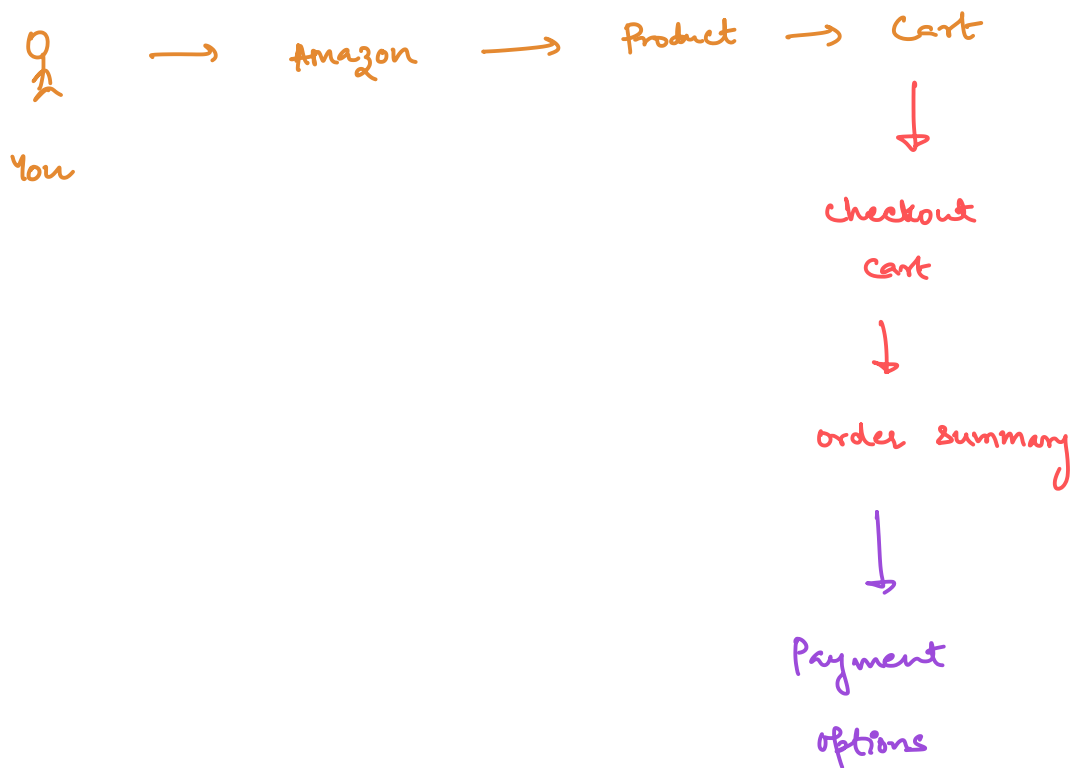 Amazon
Product
Cart
You
checkout
cart
order summary
Payment
options